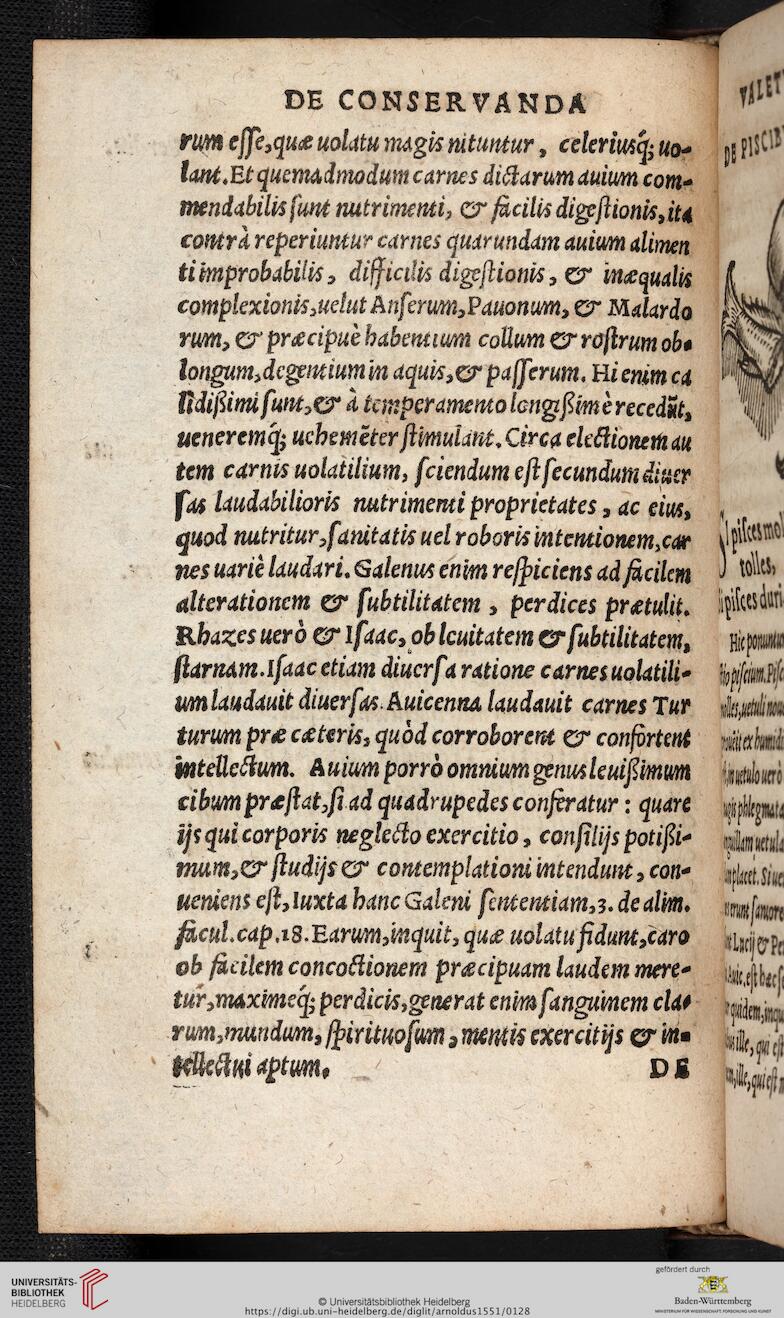 DE CONSERVANDA
rum eſſe, quæ uolatu magis nituntur, celeriusq́; uo-
lant. Et quemadmodum carnes dictarum auium com-
mendabilis ſunt nutrimenti, & facilis digeſtionis, ita
contrà reperiuntur carnes quarundam auium alimen
ti improbabilis, difficilis digeſtionis, & inæqualis
complexionis, uelut Anſerum, Pauonum, & Malardo
rum, & præcipuè habentium collum & roſtrum ob-
longum, degentium in aquis, & paſſerum. Hi enim ca
lidißimi ſunt, & à temperamento longißimè recedūt,
ueneremq́; uehemēter ſtimulant. Circa electionem au
tem carnis uolatilium, ſciendum eſt ſecundum diuer
ſas laudabilioris nutrimenti proprietates, ac eius,
quod nutritur, ſanitatis uel roboris intentionem, car
nes uariè laudari. Galenus enim reſpiciens ad facilem
alterationem & ſubtilitatem, perdices prætulit.
Rhazes uerò & Iſaac, ob leuitatem & ſubtilitatem,
ſtarnam. Iſaac etiam diuerſa ratione carnes uolatili-
um laudauit diuerſas. Auicenna laudauit carnes Tur
turum præ cæteris, quòd corroborent & confortent
intellectum. Auium porrò omnium genus leuißimum
cibum præſtat, ſi ad quadrupedes conferatur : quare
ijs qui corporis neglecto exercitio, conſilijs potißi-
mum, & ſtudijs & contemplationi intendunt, con-
ueniens eſt, Iuxta hanc Galeni ſententiam, 3. de alim.
facul. cap. 18. Earum, inquit, quæ uolatu fidunt, caro
ob facilem concoctionem præcipuam laudem mere-
tur, maximeq́; perdicis, generat enim ſanguinem cla-
rum, mundum, ſpirituoſum, mentis exercitijs & in-
tellectui aptum.
DE
VALET
DE PISCIB
piſces mol
tolles,
piſces duri
Hic ponuntur
UNIVERSITÄTS-
BIBLIOTHEK
HEIDELBERG
© Universitätsbibliothek Heidelberg
https://digi.ub.uni-heidelberg.de/diglit/arnoldus1551/0128
gefördert durch
Baden-Württemberg
MINISTERIUM FÜR WISSENSCHAFT, FORSCHUNG UND KUNST